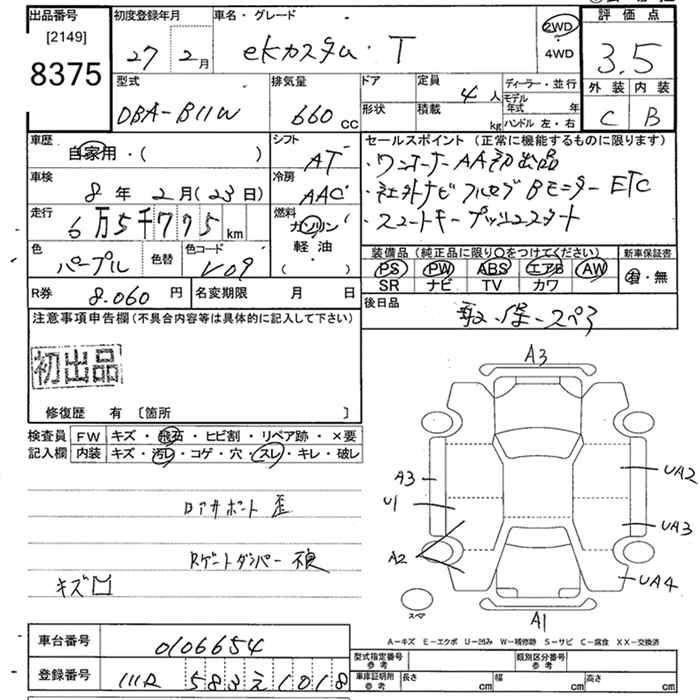 出品番号
[2149]
8375
初度登録年月
27年2月
車名・グレード
eKカスタム・T
2WD
4WD
評価点
3.5
外装 内装
C B
型式
DBA-B11W
排気量
660cc
ドア
形状
定員
4人
積載
kg
ディーラー・並行
モデル年式 年
ハンドル 左・右
車歴
自家用・( )
シフト
AT
車検
8年2月(23日)
冷房
AAC
走行
6万5千775km
燃料
ガソリン
軽油
( )
色
パープル
色替
色コード
V09
R券
8,060円
名変期限 月 日
セールスポイント(正常に機能するものに限ります)
・ワンオーナーAA初出品
・社外ナビフルセグBモニターETC
・スマートキープッシュスタート
装備品(純正品に限り○をつけてください)
PS PW ABS エアB AW
SR ナビ TV カワ
新車保証書
有・無
後日品
取・保・スペア
注意事項申告欄(不具合内容等は具体的に記入して下さい)
初出品
修復歴 有〔箇所 〕
検査員記入欄
FW キズ・飛石・ヒビ割・リペア跡・×要
内装 キズ・汚レ・コゲ・穴・スレ・キレ・破レ
ロアサポート歪
Rゲートダンパー不良
キズ凹
A3
A3
U1
A2
UA2
UA3
UA4
A1
スペア
A－キズ E－エクボ U－凹み W－補修跡 S－サビ C－腐食 XX－交換済
車台番号
0106654
登録番号
583え1018
型式指定番号
参考
類別区分番号
参考
車庫証明所
参考
長さ cm
幅 cm
高さ cm